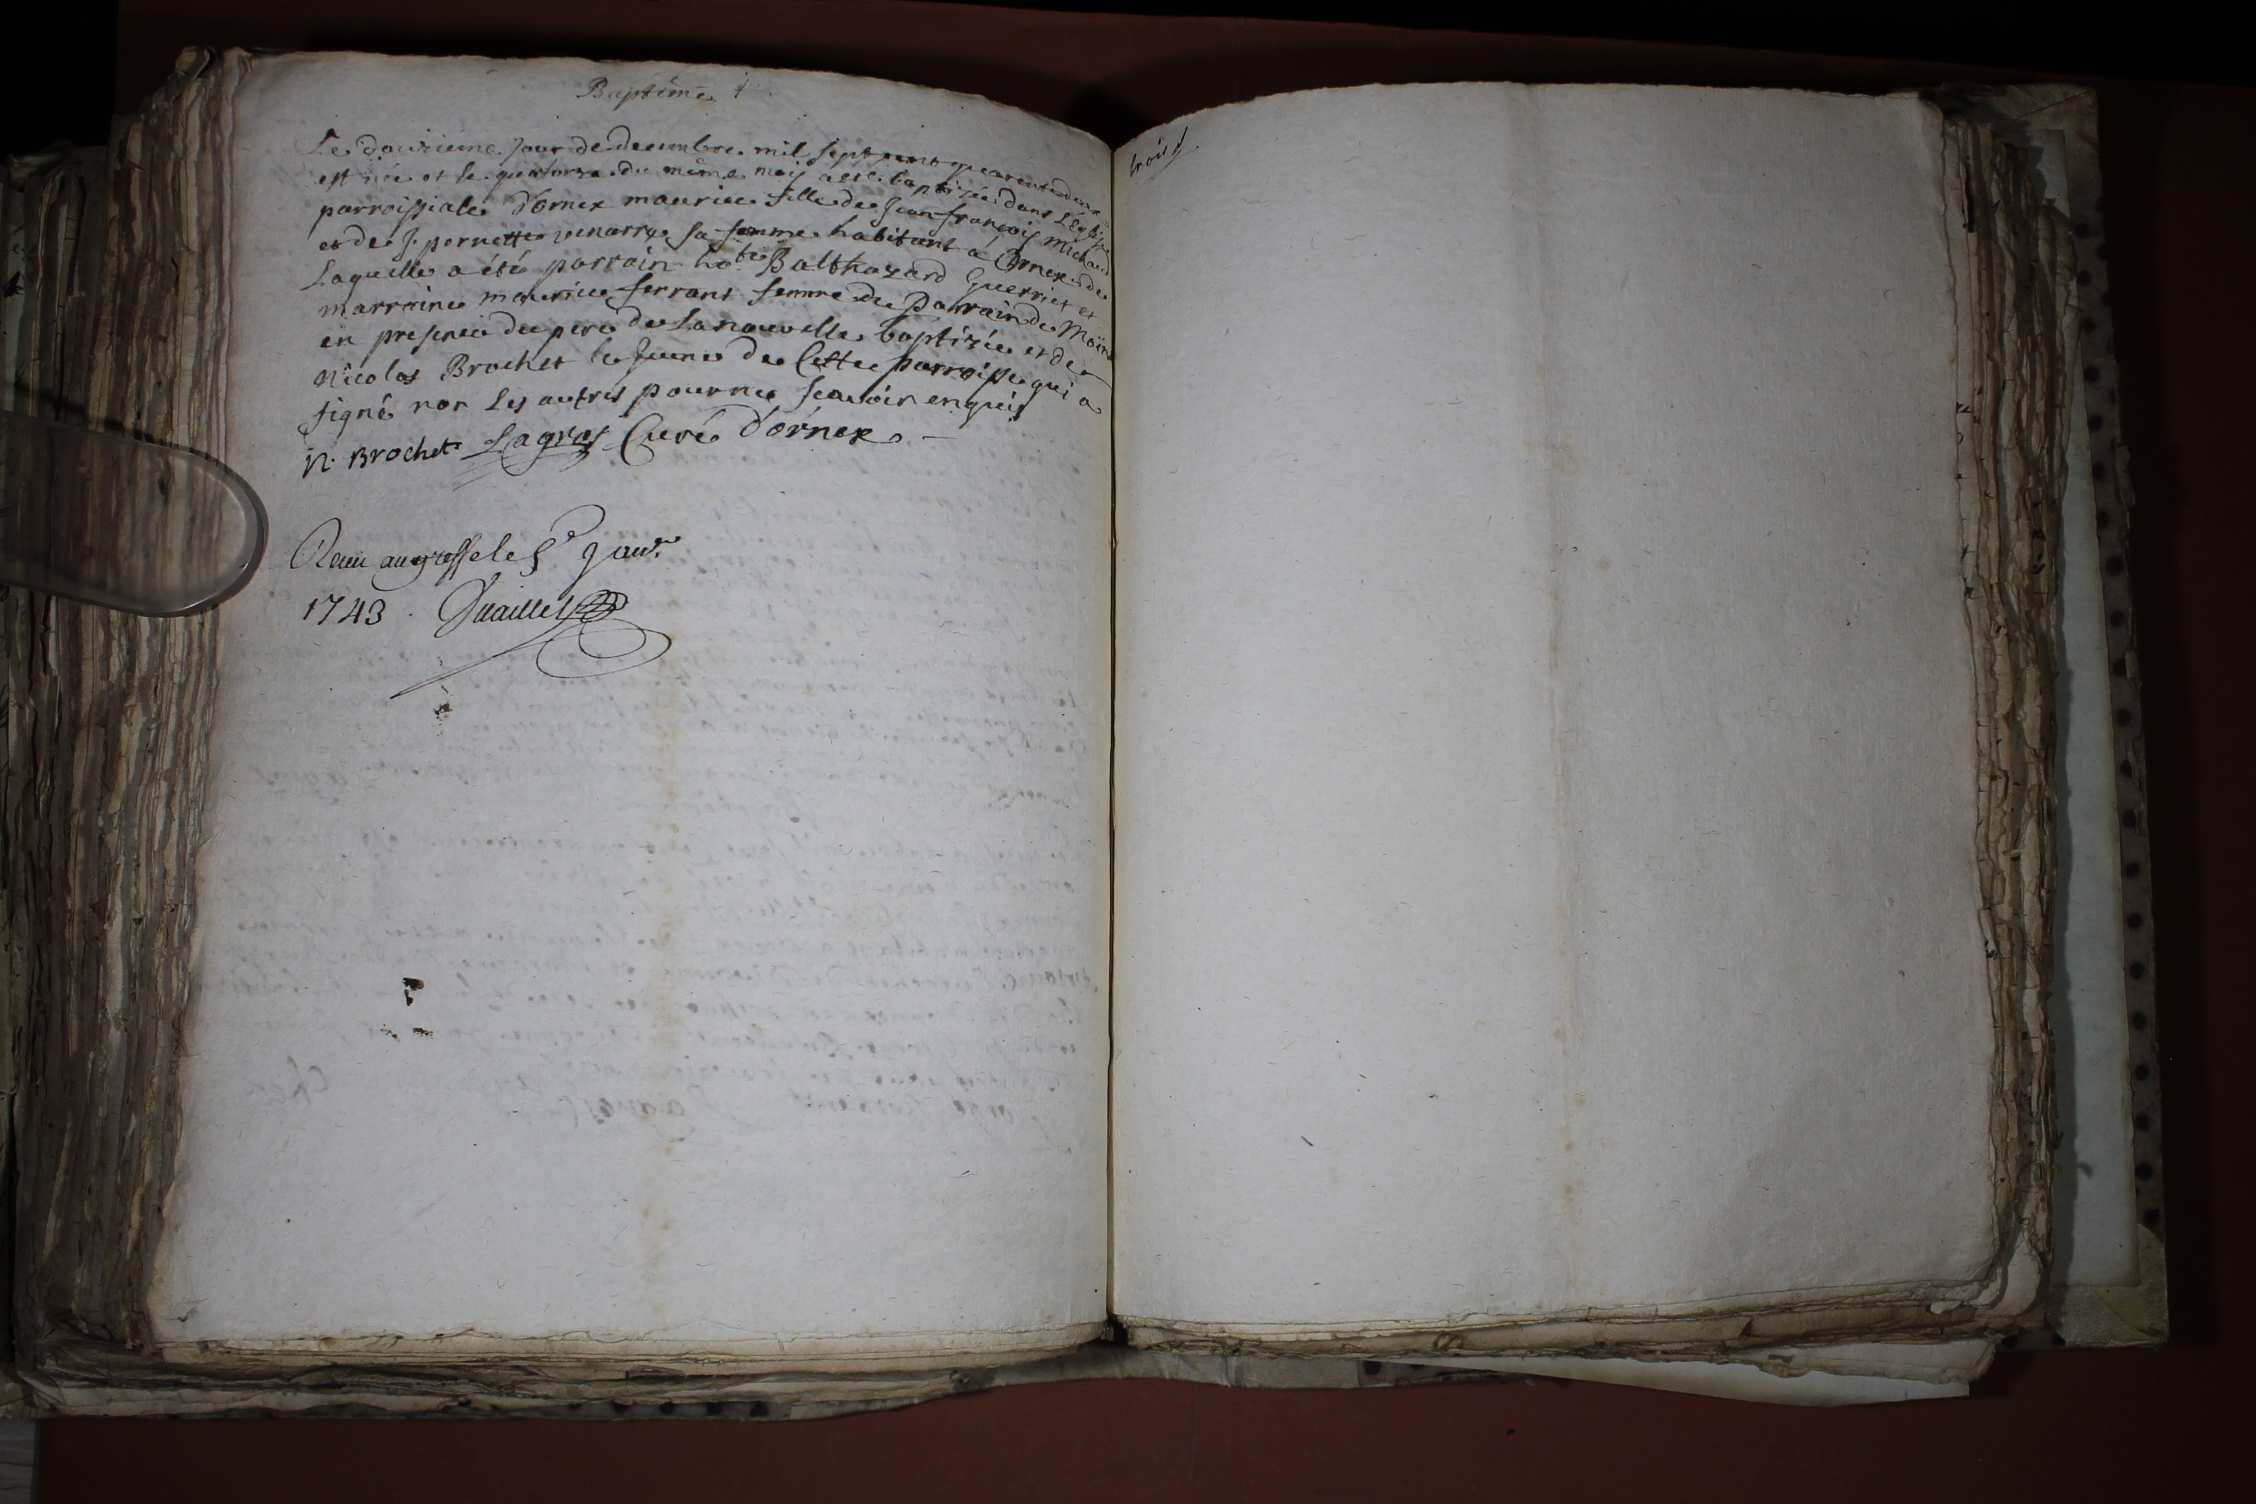 Baptême
Le douzieme jour de decembre mil sept cent quarente deux
est née et le quatorze du même mois a été baptizée dans L'église
parroissiale d'ornex maurice fille de Jean françois Michaud
et de J. pernette sa femme habitant à Ornex de
Laquelle a été parrain ho.ble Balthazard Guerriet et
marraine maurice ferrant femme du Parrain de Moïn
en presence du pere de La nouvelle baptizée et de
Nicolas Brochet le Jeune de Cette parroisse qui a
signé non Les autres pour ne scavoir enquis
N. Brochet Lagros Curé d'ornex
Receu au greffe le 5e Janv.
1743.
trois